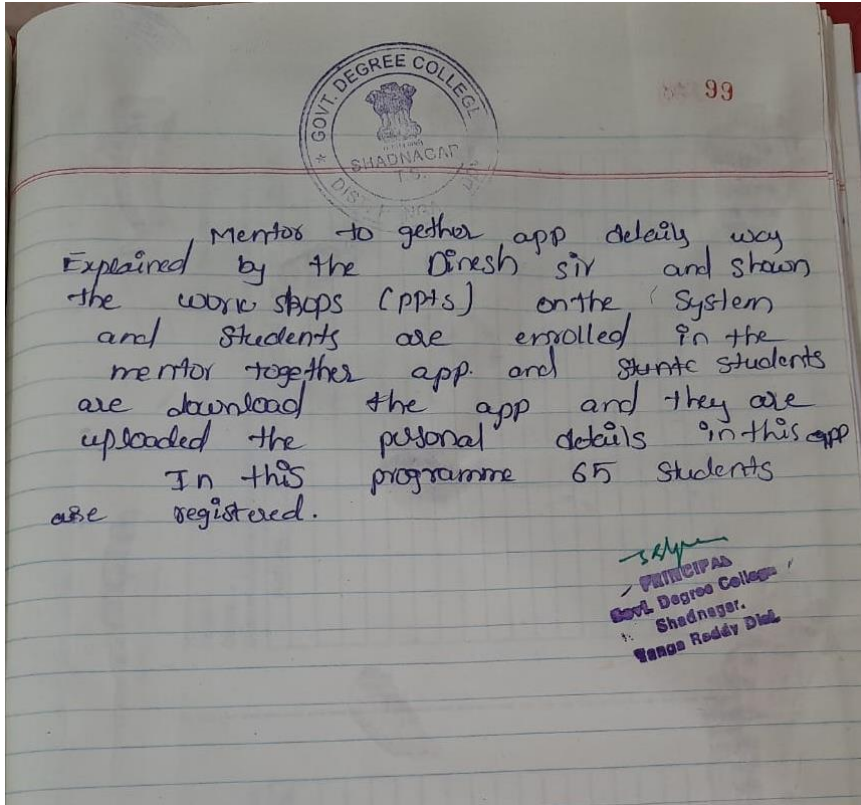 GOVT. DEGREE COLLEGE
SHADNAGAR
T.S.
99
Mentor to gether app details way
Explained by the Dinesh sir and shown
the work shops (ppts) on the System
and Students are enrolled in the
mentor together app. and students
are download the app and they are
uploaded the personal details in this app
In this programme 65 Students
are registered.
PRINCIPAL
Govt. Degree College
Shadnagar.
Ranga Reddy Dist.